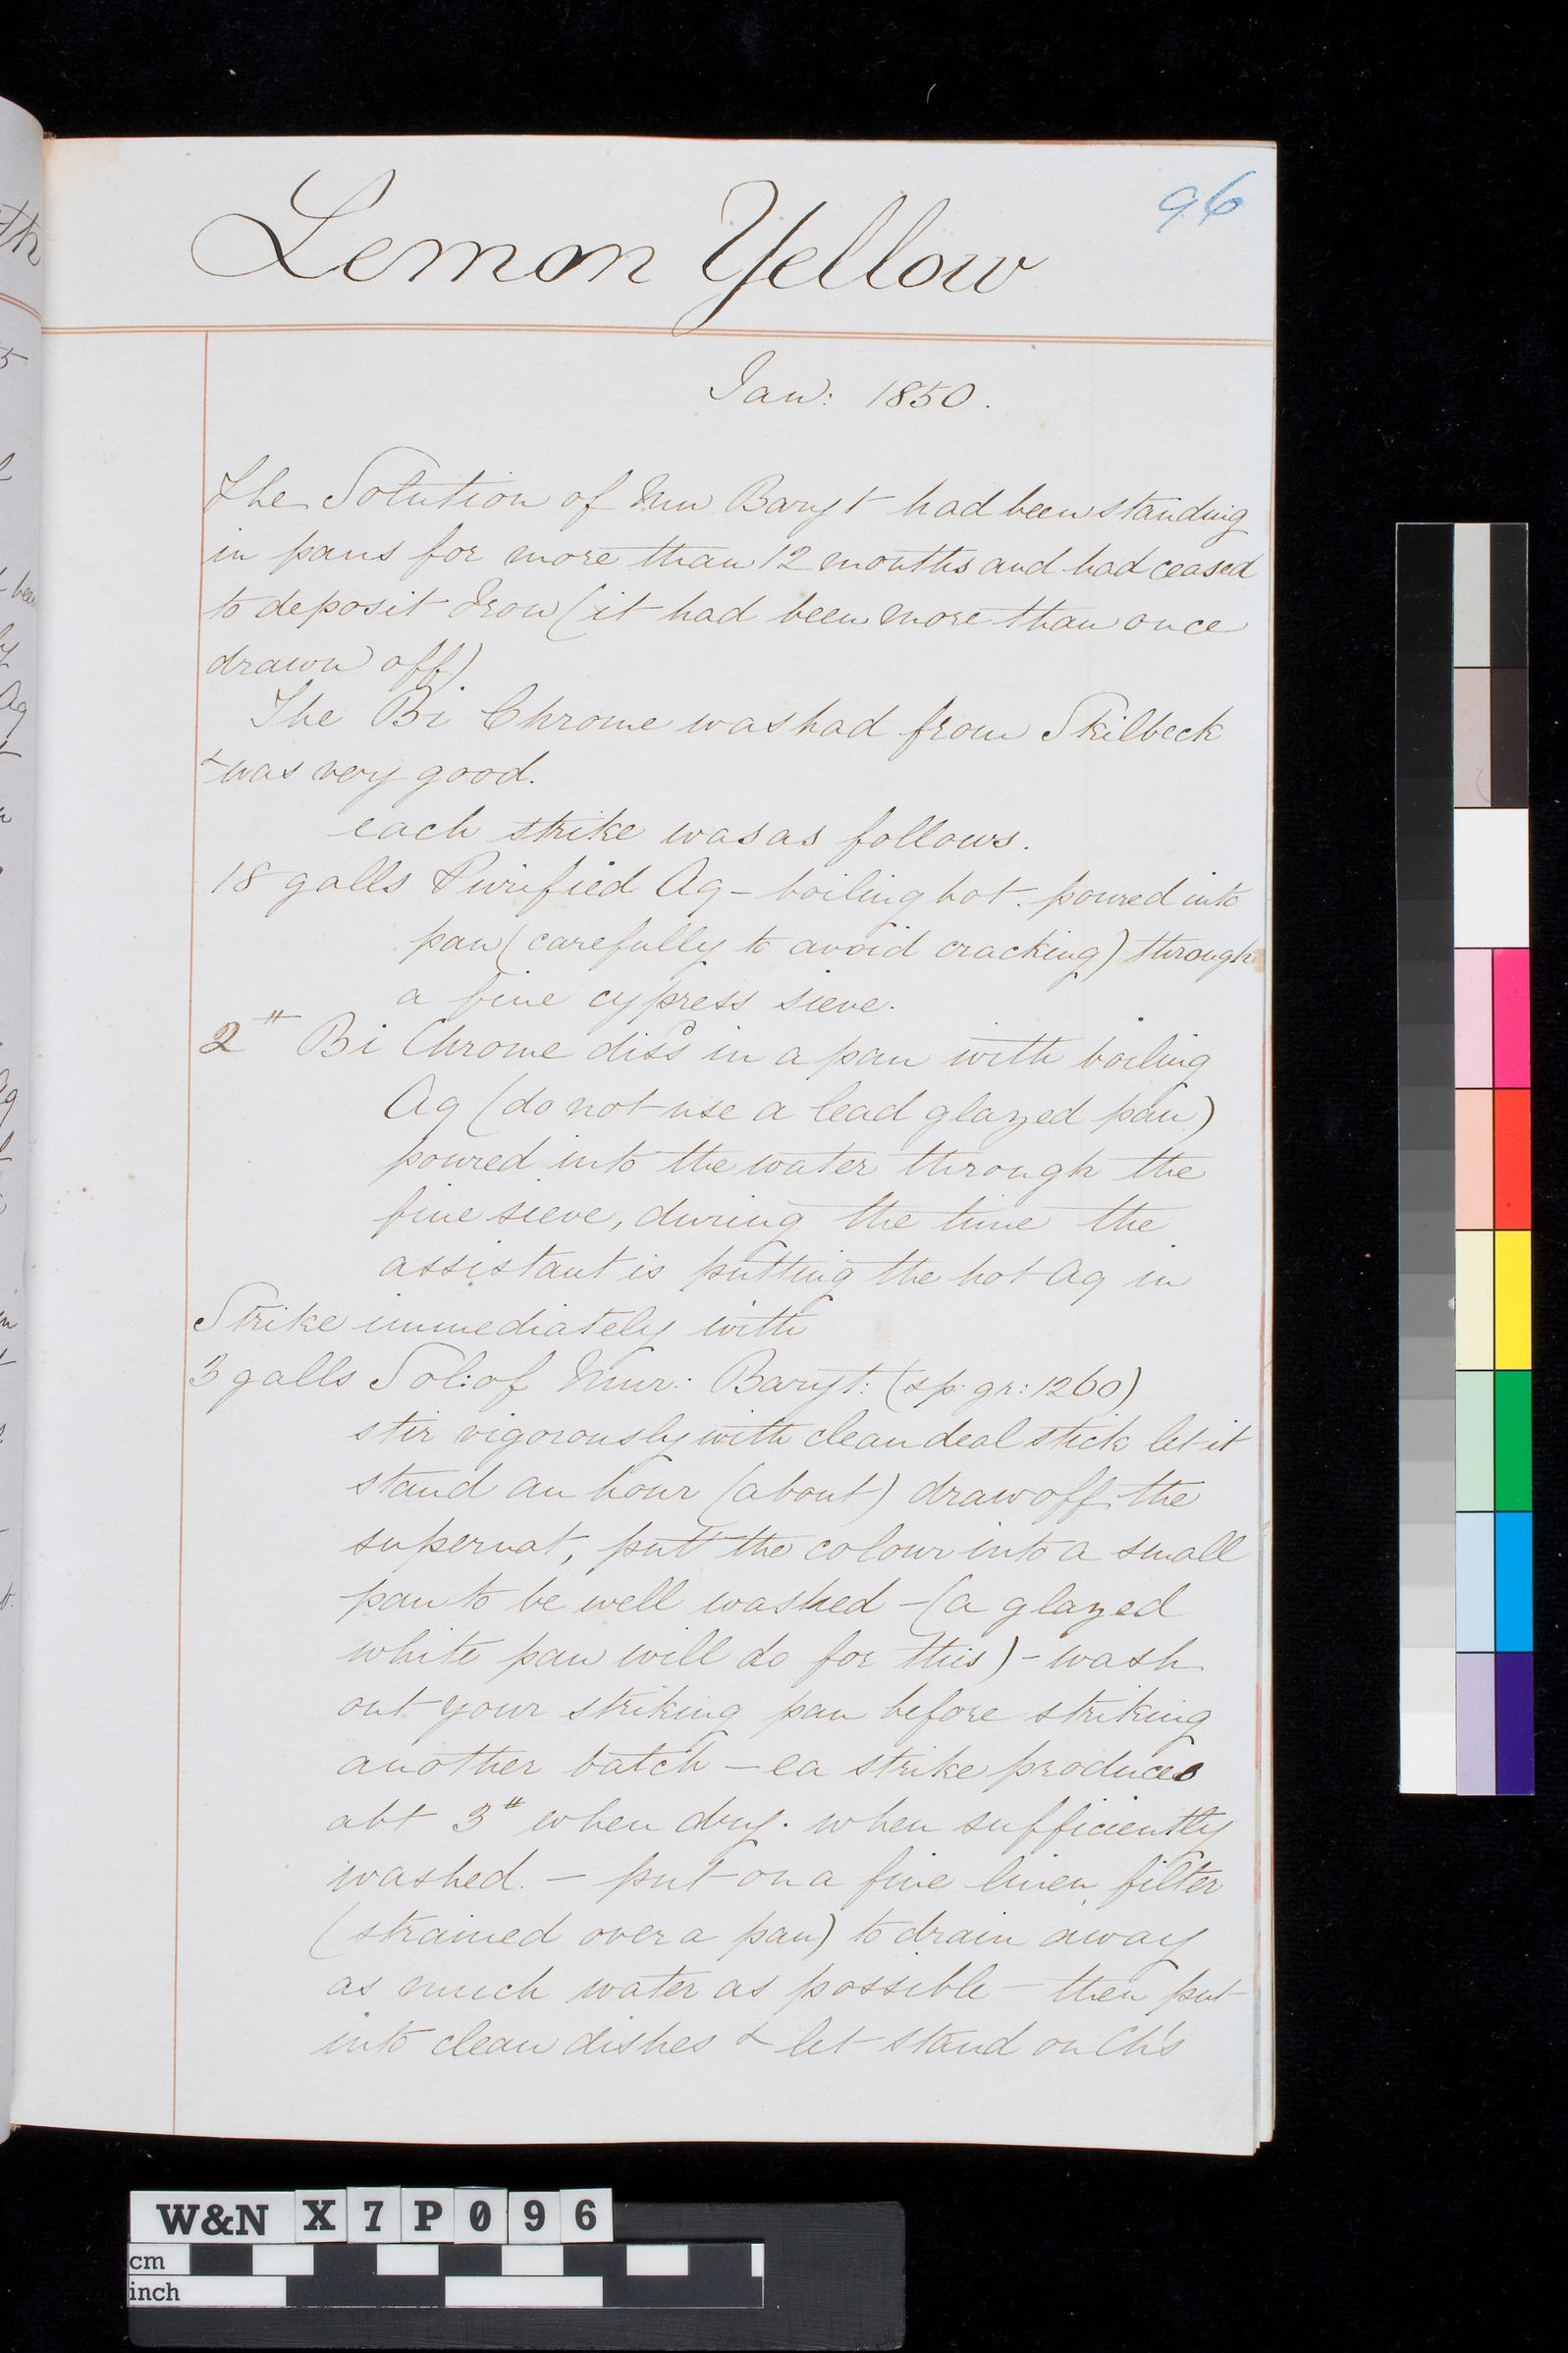 96
Lemon Yellow
Jan: 1850.
The Solution of Mur Baryt had been standing
in pans for more than 12 months and had ceased
to deposit Iron (it had been more than once
drawn off)
The Bi Chrome was had from Skilbeck
& was very good.
each strike was as follows.
18 galls Purified Aq - boiling hot. poured into
pan (carefully to avoid cracking) through
a fine cypress sieve.
2 # Bi Chrome dissd in a pan with boiling
Aq (do not use a lead glazed pan)
poured into the water through the
fine sieve, during the time the
assistant is putting the hot Aq in
Strike immediately with
3 galls Sol: of Mur: Baryt: (sp: gr: 1260)
stir vigorously with clean deal stick let it
stand an hour (about) draw off the
supernat, put the colour into a small
pan to be well washed - (a glazed
white pan will do for this) - wash
out your striking pan before striking
another batch - ea strike produces
abt 3# when dry. when sufficiently
washed. - put on a fine linen filter
(strained over a pan) to drain away
as much water as possible - then put
into clean dishes & let stand on Ch's
W&N X7P096
cm
inch